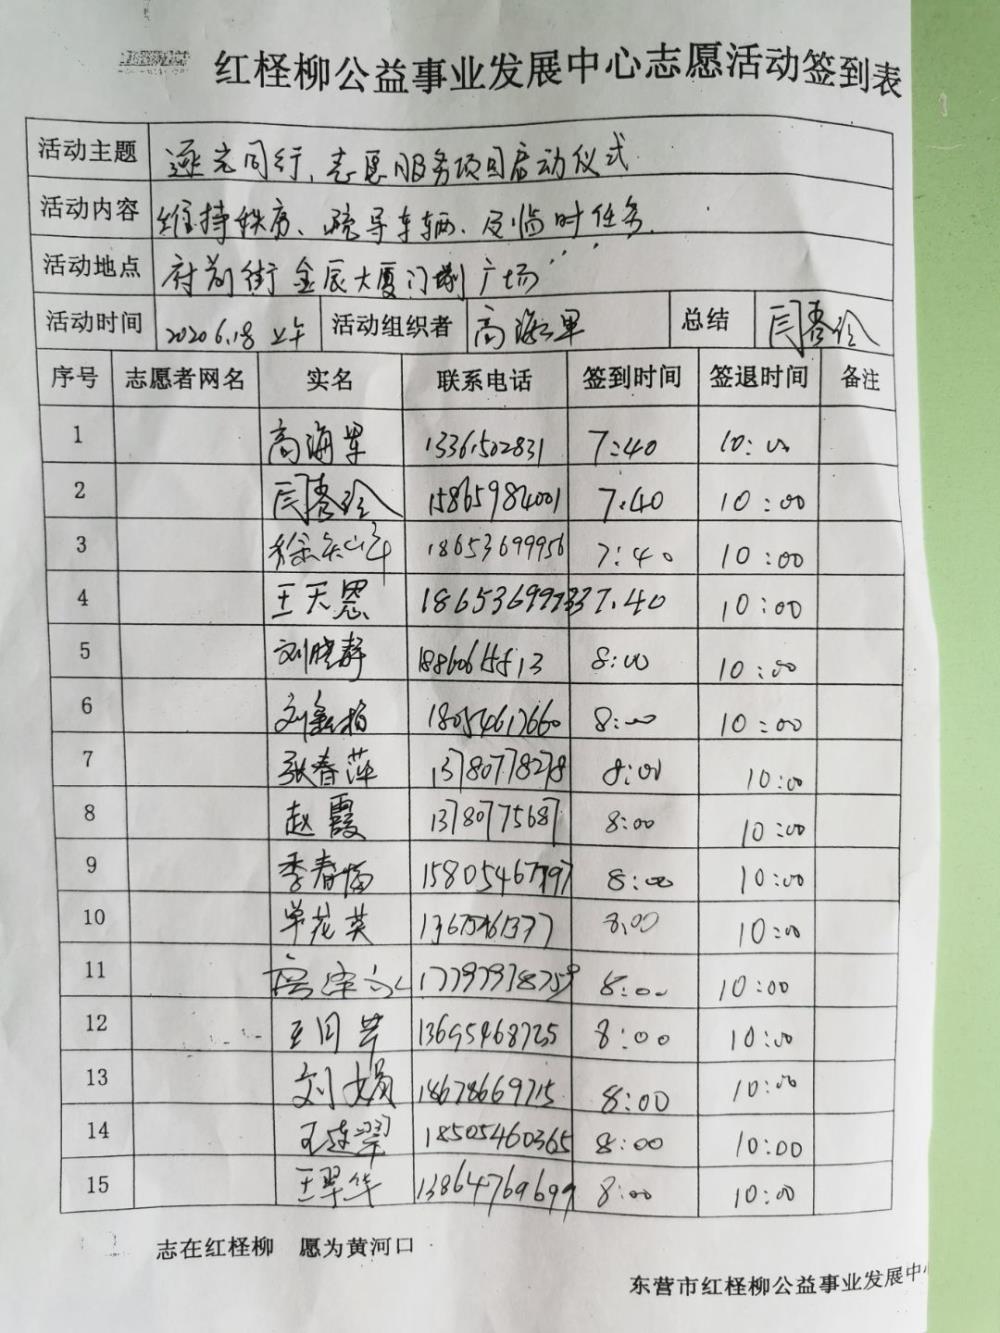 红柽柳公益事业发展中心志愿活动签到表
活动主题 逐光同行、志愿服务项目启动仪式
活动内容 维持秩序、疏导车辆、及临时任务.
活动地点 府前街金辰大厦门前广场
活动时间 2020 6.18 上午 活动组织者 高海军 总结 闫春玲
序号 志愿者网名 实名 联系电话 签到时间 签退时间 备注
1 高海军 7:40 10:00
2 闫春玲 15865984001 7.40 10:00
3 18653699956 7:40 10:00
4 王天恩 7.40 10:00
5 刘晓静 8:00 10:00
6 18054617660 8:00 10:00
7 张春萍 13780778278 8:00 10:00
8 赵霞 13780775687 8:00 10:00
9 季春梅 15805467797 8:00 10:00
10 单花英 8:00 10:00
11 17797978759 8:00 10:00
12 王同芹 13695468725 8:00 10:00
13 刘娟 18678669715 8:00 10:00
14 王连翠 18505460365 8:00 10:00
15 王翠华 13864769699 8:00 10:00
志在红柽柳 愿为黄河口
东营市红柽柳公益事业发展中